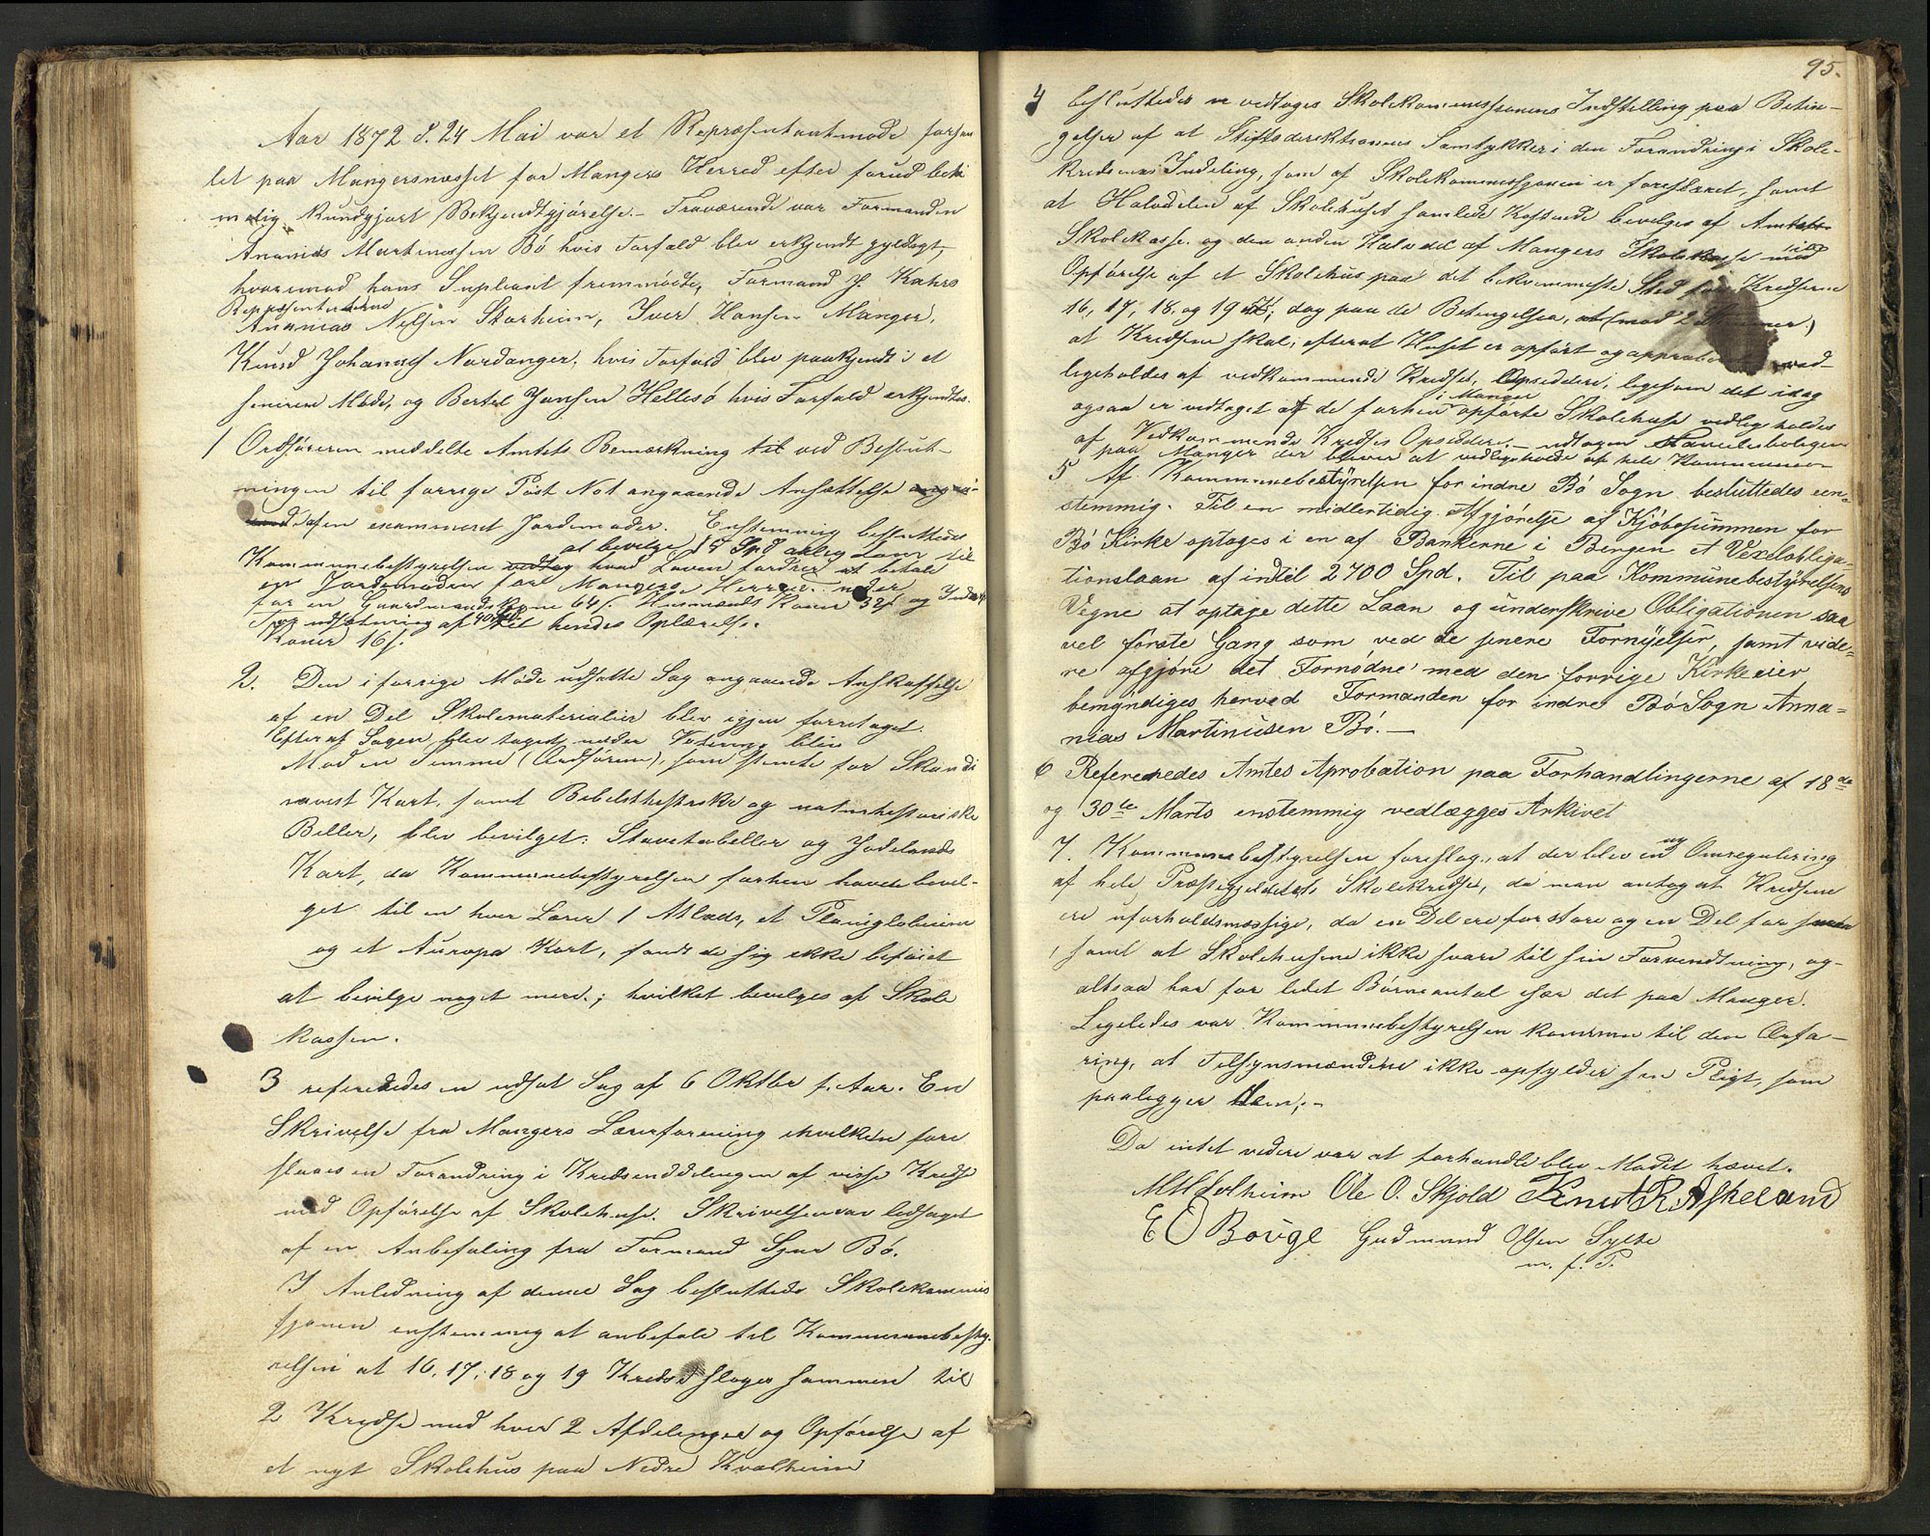 Aar 1872 d. 24 Mai var et Repræsentantmøde forsam
let paa Mangersnæsset for Mangers Herred efter forud beti
melig kundgjort Bekjendtgjørelse. Fraværende var Formanden
Ananias Martinussen Bö hvis Forfald blev erkjendt gyldigt,
hvorimod hans Supleant fremmödte, Formand J. Kahrs
Repræsentanterne
Ananias Nilsen Storheim, Iver Hansen Manger,
Knud Johannes Nordanger, hvis Forfald blev paakjendt i et
senere Möde, og Bertel Jansen Hellesö hvis Forfald erkjendtes.
1 Ordföreren meddelte Amtets Bemærkning til ved Beslut-
ningen til forrige Post No 1 angaaende Ansættelse
examineret Jordemoder. Enstemmig besluttedes
at bevilge 18 Spd aarlig Lön til
Kommunebestyrelsen hvad Loven fordrer at betale
Jordemoderen for Mangers Herred
for en Gaardmands Kone 64 s. Husmands Kone 32 s og
Koner 16 s.
Til udsætning af 40 Spd til hendes Oplærelse.
2. Den i forrige Möde udsatte Sag angaaende Anskaffelse
af en Del Skolematerialier blev igjen foretaget.
Efter at Sagen blev taget under Votering blev
Mod en Stemme (Ordförerens), som stemte for Skandi
navisk Kart, samt Bibelsthistoriske og naturhistoriske
Billeder, blev bevilget: Stavetabeller og Jødelands
Kart, da Kommunebestyrelsen forhen havde bevil-
get til en hver Lærer 1 Atlads, et Planiglobium
og et Auropa Kart, fandt de sig ikke beføiet
at bevilge noget mere; hvilket bevilges af Skole
kassen.
3 refereredes en udsat Sag af 6 Oktbr f. Aar. En
Skrivelse fra Mangers Lærerforening i hvilken fore
slaaes en Forandring i Kredsinddelingen af visse Kredse
med Opførelse af Skolehuse. Skrivelsen var ledsaget
af en Anbefaling fra Formand Sjur Bö.
I Anledning af denne Sag besluttede Skolekommis
sjonen enstemmig at anbefale til Kommunebesty-
relsen at 16, 17, 18 og 19 Kredse slaaes sammen til
2 Kredse med hver 2 Afdelinger og Opførelse af
et nyt Skolehus paa Nedre Kvalheim
95.
4 besluttedes at vedtages Skolekommissionens Indstilling paa Betin-
gelser af at Stiftsdirektionens Samtykker i den Forandring i Skole-
kredsenes Indeling, som af Skolekommissjonen er foreslaaet, samt
at Halvdelen af Skolehusets samlede Kostende bevilges af Amtets
Skolekasse og den anden Halvdel af Mangers Skolekasse til
Opførelse af et Skolehus paa det bekvemmeste Sted for Kredsene
16, 17, 18, og 19, dog paa de Betingelser, (mod 2 Stemmer)
at Kredsene skal, efterat Huset er opført og approberet ved-
ligeholdes af vedkommende Kredses Opsiddere, ligesom det idag
ogsaa er vedtaget at de forhen i Manger opførte Skolehuse vedligeholdes
af Vedkommende Kredses Opsiddere. - undtagen Familiebolegen
paa Manger der bliver at vedligeholde af hele Kommunen
5 Af Kommunebestÿrelsen for indre Bö Sogn besluttedes een-
stemmig. Til en midlertidig Afgjörelse af Kjöbesummen for
Bö Kirke optages i en af Bankerne i Bergen et Vexelobliga-
tionslaan af indtil 2700 Spd. Til paa Kommunebestÿrelsens
Vegne at optage dette Laan og underskrive Obligationen saa
vel förste Gang som ved de senere Fornÿelser, samt vide-
re afgjöre det Fornödne med den forrige Kirkeeier
bemÿndiges herved Formanden for indre Bö Sogn Anna-
nias Martinusen Bö. —
6 Refereredes Amtes Aprobation paa Forhandlingerne af 18de
og 30te Marts enstemmig vedlægges Arkivet
7. Kommunebestyrelsen foreslog, at der blev en ny Omregulering
af hele Præstegjeldets Skolekredse, da man antog at Kredsene
ere uforholdsmæssige, da en Del ere for store og en Del for smaa
samt at Skolehusene ikke svare til sin Forventning, og
altsaa har for lidet Börneantal især det paa Manger.
Ligeledes var Kommunebestyrelsen kommen til den Erfa-
ring, at Tilsynsmændene ikke opfylder sin Pligt, som
paaligger Dem;-
Da intet videre var at forhandle blev Mødet hævet.
Ole O. Skjold Knut R. Askeland
E O Bouge Gudmund Olsen Sylte
m. f. P.